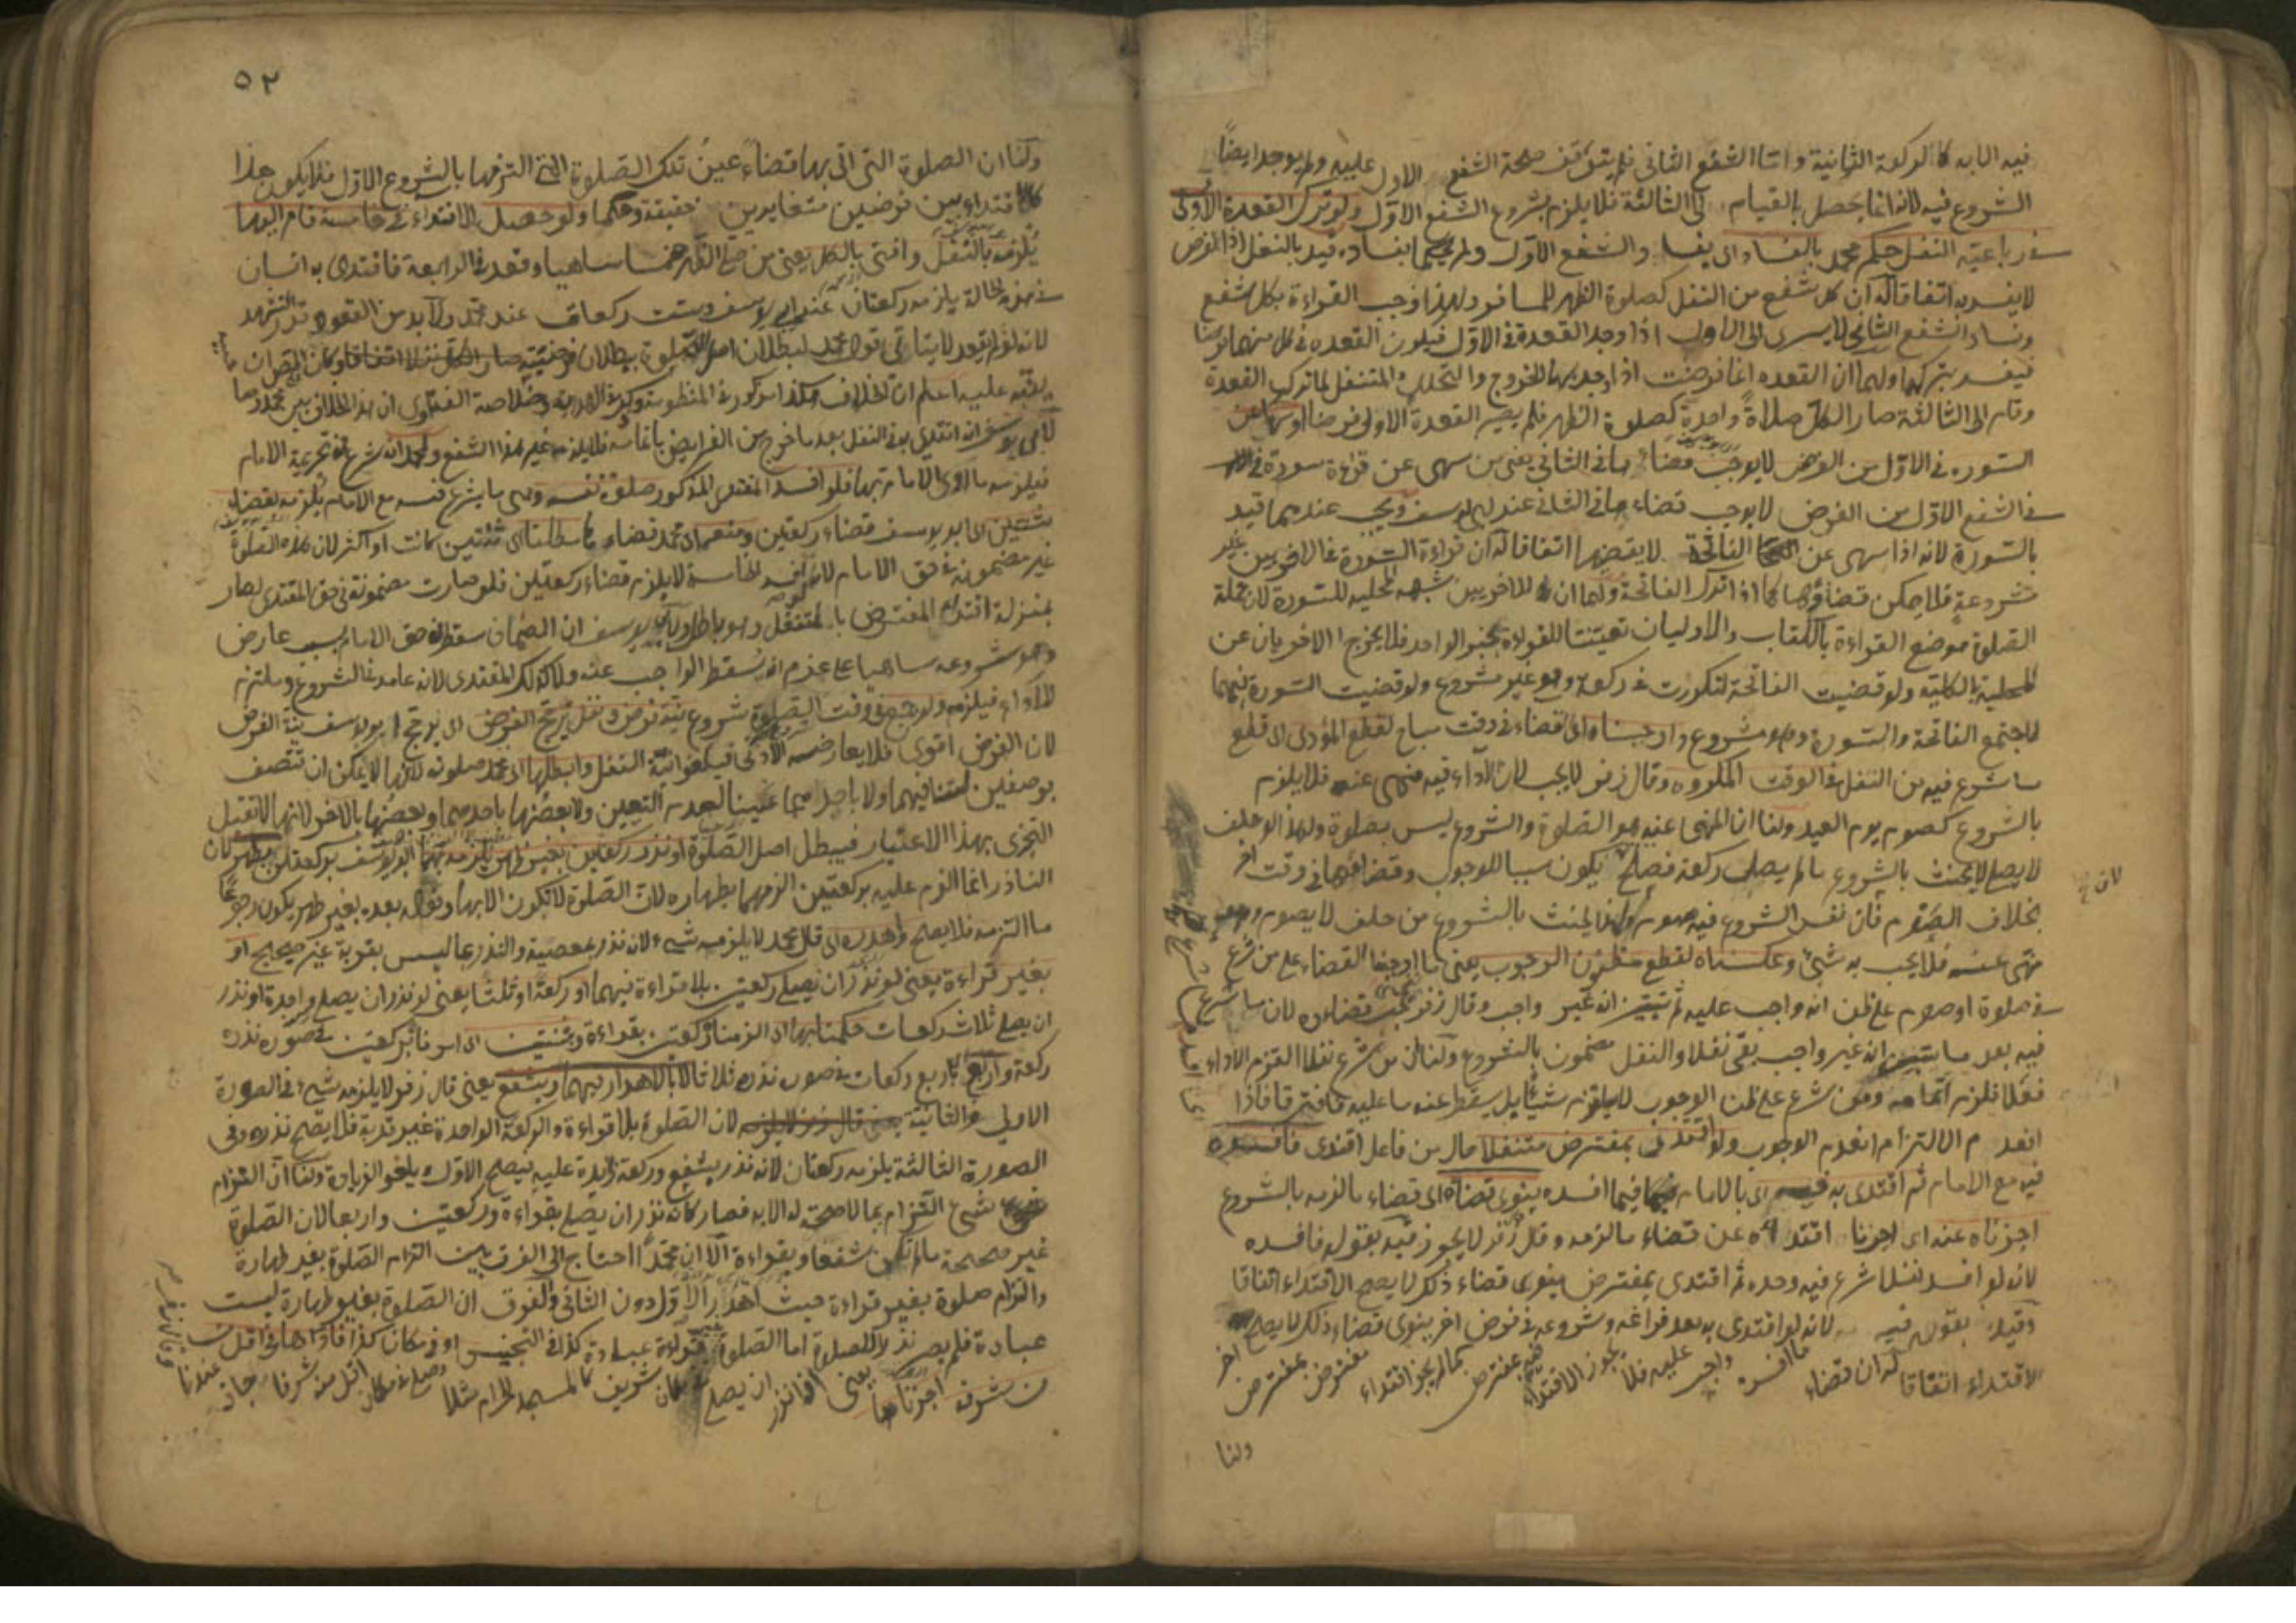 فيه الا به كالركعة الثانية واما الشفع الثاني فلم يتوقف صحة الشفع الاول عليه ولم يوجد ايضاً
الشروع فيه لانه انما يحصل بالقيام الى الثالثة فلا يلزم بشروع الشفع الاول ولو ترك القعدة الاولى
في رباعية النفل حكم محمد بالفساد والشفع الاول ولم يحكما بفساده قيد بالنفل اذ الفرض
لا يفسد به اتفاقا له ان كل شفع من النفل كصلوة الظهر للمسافر ولهذا وجب القراءة بكل شفع
وفساد الشفع الثاني لا يسرى الى الاول اذا وجد القعدة في الاول فيكون القعدة في كل منهما فرضا
فيفسد بتركها ولهما ان القعدة انما فرضت اذا وجد بها الخروج والتحلل والمتنفل لما ترك القعدة
وقام الى الثالثة صار الكل صلاةً واحدةً كصلوة الظهر فلم يصر القعدة الاولى فرضا او سها عن
السورة في الاول من الفرض لا يوجب قضاءها في الثاني يعنى من سهى عن قراءة سورة
في الشفع الاول من الفرض لا يوجب قضاءها في الثاني عند ابي يوسف ويجب عندهما قيد
بالسورة لانه اذا سهى عن الفاتحة لا يقضيها اتفاقا له ان قراءة السورة في الاخريين غير
مشروعة فلا يمكن قضاؤها كما اذا ترك الفاتحة ولهما ان للاخريين شبهة المحلية للسورة لان جملة
الصلوة موضع القراءة بالكتاب والاوليان تعينتا للقراءة بخبر الواحد فلا يخرج الاخريان عن
المحلية بالكلية ولو قضيت الفاتحة لتكررت في ركعة وهو غير مشروع ولو قضيت السورة فيهما
لاجتمع الفاتحة والسورة وهو مشروع واوجبناه اى القضاء في وقت مباح لقطع المؤدى اى قطع
ما شرع فيه من النفل في الوقت المكروه وقال زفر لا يجب لان الاداء فيه منهى عنه فلا يلزم
بالشروع كصوم يوم العيد ولنا ان المنهى عنه هو الصلوة والشروع ليس بصلوة ولهذا لو حلف
لا يصلى لا يحنث بالشروع ما لم يصل ركعة فصلح يكون سببا للوجوب وقضاؤها في وقت اخر
لان
بخلاف الصوم فان نفس الشروع فيه صوم ولهذا يحنث بالشروع من حلف لا يصوم وهو
منهى عنه فلا يجب به شئ وعكسناه لقطع مظنون الوجوب يعنى ما اوجبنا القضاء على من شرع
في صلوة او صوم على ظن انه واجب عليه ثم تبين انه غير واجب وقال زفر يجب قضاؤه لان ما شرع
فيه بعد ما تبين انه غير واجب بقى نفلا والنفل مضمون بالشروع ولنا ان من شرع نفلا التزم الاداء
فعلا فلزم اتمامه ومن شرع على ظن الوجوب لا يلتزم شيئا بل يسقط عنه ما عليه فافترقا فاذا
انعدم الالتزام انعدم الوجوب ولو اقتدى بمفترض متنفلا حال من فاعل اقتدى فافسده
فيه مع الامام ثم اقتدى به اى بالامام فيما افسده ينوى قضاءه اى قضاء ما لزمه بالشروع
اجزناه عنه اى اجزنا اقتداءه عن قضاء ما لزمه وقال زفر لا يجوز قيد بقوله فافسده
لانه لو افسد نفلا شرع فيه وحده ثم اقتدى بمفترض ينوى قضاء ذلك لا يصح الاقتداء اتفاقا
وقيد بقوله فيه لانه لو اقتدى به بعد فراغه وشروعه في فرض اخر ينوى قضاء ذلك لا يصح
الاقتداء اتفاقا له ان قضاء ما افسده واجب عليه فلا يجوز الاقتداء بمفترض كما لم يجز اقتداء مفترض بمفترض اخر
ولنا
٥٢
ولنا ان الصلوة التى اتى بها قضاءً عينُ تلك الصلوة التى التزمها بالشروع الاول فلا يكون هذا
كاقتداء بين فرضين متغايرين حقيقة وحكما ولو حصل الاقتداء في خامسة قام اليها
يلزمه بالتنفل وافتى بالكل يعنى من صلى الظهر خمسا ساهيا وقعد في الرابعة فاقتدى به انسان
في هذه الحالة يلزمه ركعتان عند ابى يوسف وست ركعات عند محمد ولابد من القعود قدر التشهد
لانه لو لم يقعد لا يتاتى قول محمد لبطلان اصل الصلوة ببطلان فرضيته
عليه اعلم ان الخلاف هكذا مذكور في المنظومة وذكر في الهداية وخلاصة الفتاوى ان هذا الخلاف بين محمد وهما
لابى يوسف انه اقتدى به في النفل بعد ما خرج من الفرايض باتمامه فلا يلزمه غير هذا الشفع ولمحمد انه شرع في تحريمة الامام
فيلزمه ما ادى الامام بها فلو افسد المقتدى المذكور صلوة نفسه وهى ما يشرع فيه مع الامام يُلزمه بقضاء
ثنتين اى ابو يوسف قضاء ركعتين ومنعه اى محمد قضاءها مطلقا اى ثنتين كانت او اكثر لان هذه الصلوة
غير مضمونة في حق الامام لانه لو افسد الخامسة لا يلزمه قضاء ركعتين فلو صارت مضمونة في حق المقتدى لصار
بمنزلة اقتداء المفترض بالمتنفل وهو باطل ولابى يوسف ان الضمان سقط في حق الامام بسبب عارض
وهو شروعه ساهيا على عزم ان يسقط الواجب عنه ولا كذلك المقتدى لانه عامد في الشروع وملتزم
للاداء فيلزمه ولو جمع في وقت الصلوة بشروع بنية فرض ونفل يرجح الفرض اى يرجح ابو يوسف نية الفرض
لان الفرض اقوى فلا يعارضه الادنى فيلغو نية النفل وابطلها اى محمد صلوته لانها لا يمكن ان تتصف
بوصفين لتنافيهما ولا باحدهما عينا لعدم التعيين ولا بعضُها باحدهما وبعضُها بالاخر لانها لا تقبل
التجزى بهذا الاعتبار فيبطل اصل الصلوة او نذر ركعتين بغير طهر يلزمه ابو يوسف بركعتين بطهر لان
الناذر انما التزم عليه بركعتين الزمهما بطهارة لان الصلوة لا تكون الا بها وقوله بعده بغير طهر يكون رجوعًا
ما التزمه فلا يصلح وهدره اى قال محمد لا يلزمه شئ لانه نذر بمعصية والنذر بما ليس بقربة غير صحيح او
بغير قراءة يعنى لو نذر ان يصلى ركعتين بلا قراءة فيهما او ركعة او ثلثا يعنى لو نذر ان يصلى واحدة او نذر
ان يصلى ثلاث ركعات حكمنا بها اى الزمناه ركعتين بقراءة وبثنتين اى امرنا بركعتين في صورة نذره
ركعة واربع اى باربع ركعات في صورة نذره ثلاثا لا بالاهدار فيهما وبشفع يعنى قال زفر لا يلزمه شئ في الصورة
الاولى والثانية لان الصلوة بلا قراءة والركعة الواحدة غير قربة فلا يصح نذره وفى
الصورة الثالثة يلزمه ركعتان لانه نذر بشفع وركعة زايدة عليه فيصلح الاول ويلغو الزيادة ولنا ان التزام
شئ التزام بما لا صحة له الا به فصار كانه نذر ان يصلى بقراءة وركعتين واربعا لان الصلوة
غير صحيحة ما لم تكن شفعا وبقراءة الا ان محمدا احتاج الى الفرق بين التزام الصلوة بغير طهارة
والتزام صلوة بغير قراءة حيث اهدر الاول دون الثانى والفرق ان الصلوة بغير طهارة ليست
عبادة فلم يصر نذرا للصلوة اما الصلوة بغير قراءة عبادة كذا في التجنيس او في مكان كذا فاداها في اقل من
من شرفه اجزناها يعنى اذا نذر ان يصلى في مكان شريف كالمسجد الحرام مثلا وصلى في مكان اقل منه شرفا جاز عندنا